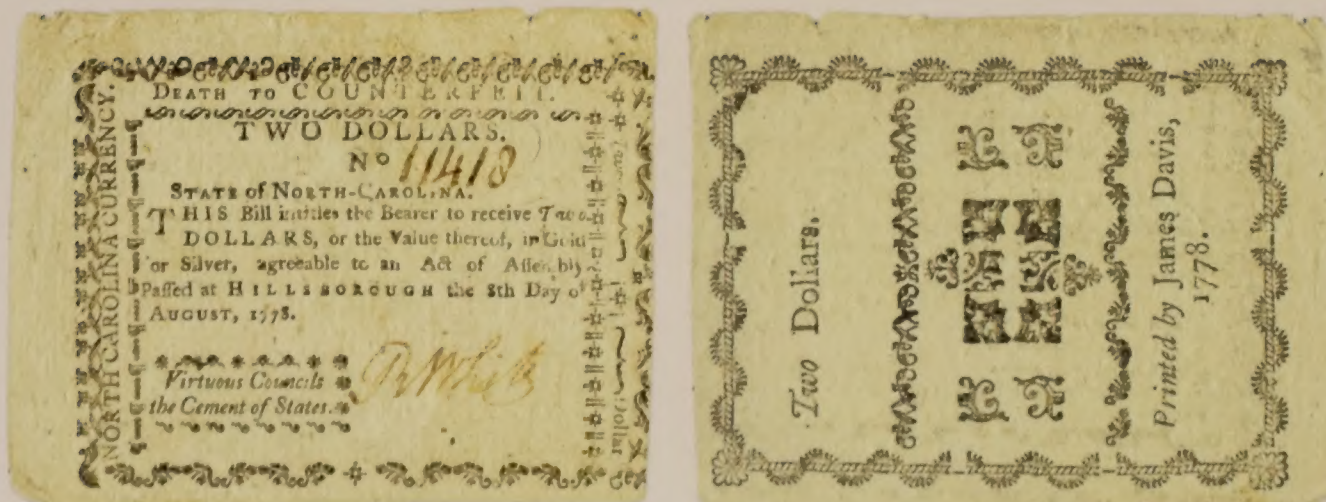 DEATH TO COUNTERFEIT.
TWO DOLLARS.
No 11418
STATE of NORTH-CAROLINA.
THIS Bill intitles the Bearer to receive Two
DOLLARS, or the Value thereof, in Gold
or Silver, agreeable to an Act of Assembly
Passed at HILLSBOROUGH the 8th Day of
AUGUST, 1778.
Virtuous Councils
the Cement of States.
NORTH CAROLINA CURRENCY.
White
Dollar
Two Dollars.
Printed by James Davis,
1778.